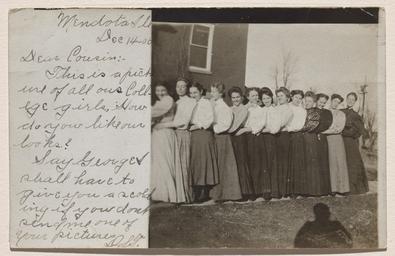 Mendota Ill
Dec 14-06
Dear Cousin:-
This is a pict
ure of all our Coll
ege girls, How
do you like our
looks?
Say George I
shall have to
give you a scold
ing if you dont
send me one of
your pictures